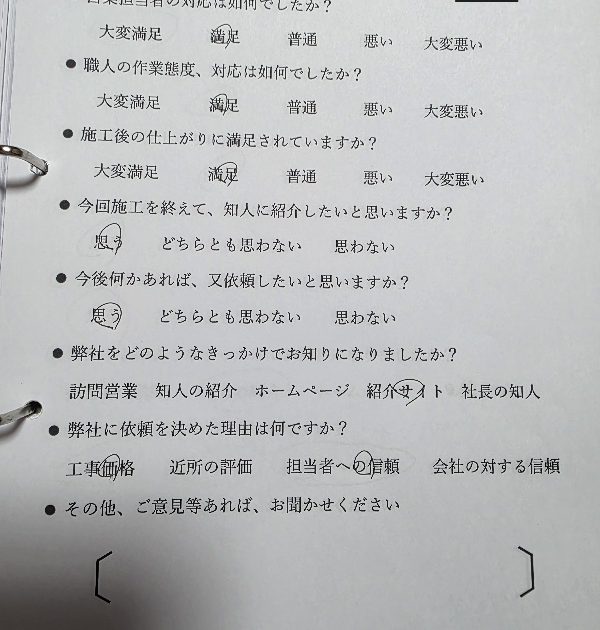 営業担当者の対応は如何でしたか？
大変満足 満足 普通 悪い 大変悪い
● 職人の作業態度、対応は如何でしたか？
大変満足 満足 普通 悪い 大変悪い
● 施工後の仕上がりに満足されていますか？
大変満足 満足 普通 悪い 大変悪い
● 今回施工を終えて、知人に紹介したいと思いますか？
思う どちらとも思わない 思わない
● 今後何かあれば、又依頼したいと思いますか？
思う どちらとも思わない 思わない
● 弊社をどのようなきっかけでお知りになりましたか？
訪問営業 知人の紹介 ホームページ 紹介サイト 社長の知人
● 弊社に依頼を決めた理由は何ですか？
工事価格 近所の評価 担当者への信頼 会社の対する信頼
● その他、ご意見等あれば、お聞かせください